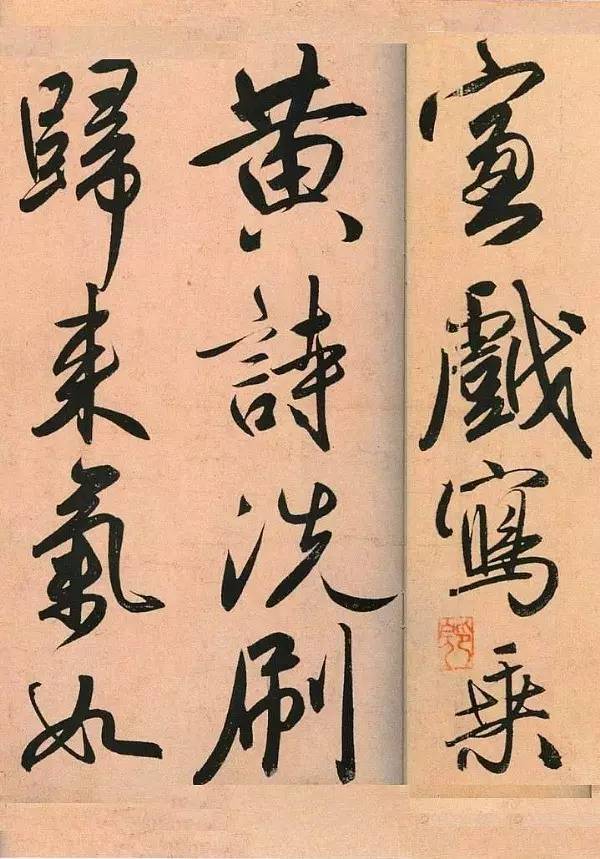 窻戲寫乘
黃詩洗刷
歸來氣如